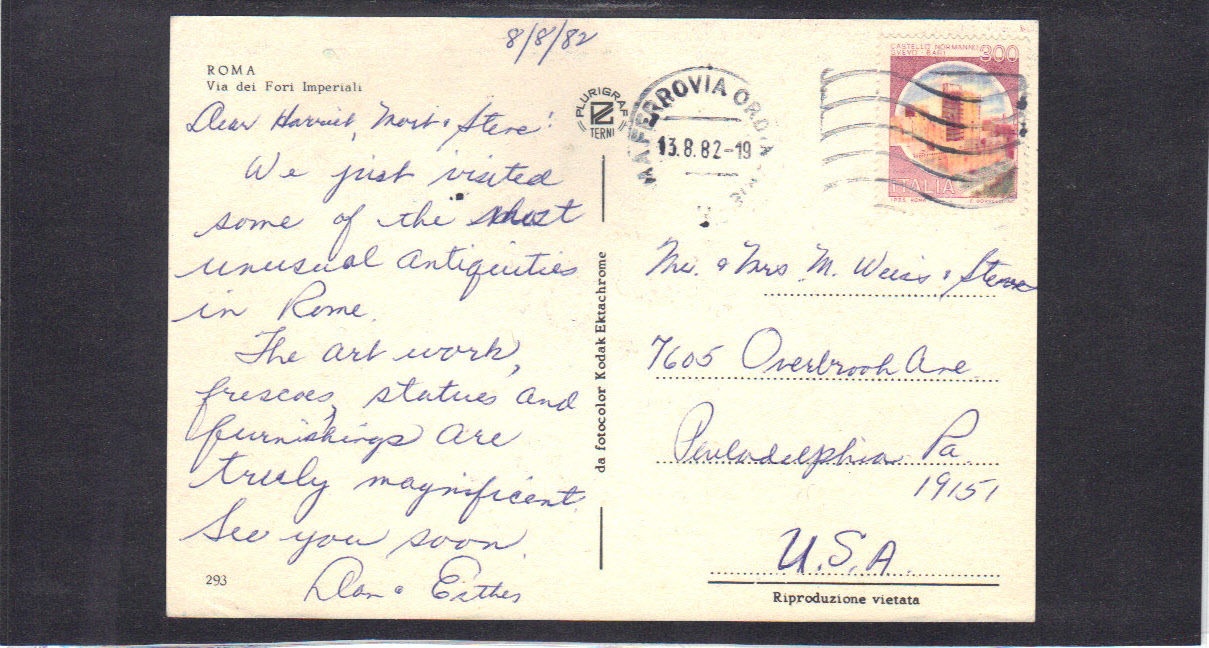 8/8/82
ROMA
Via dei Fori Imperiali
Dear Harriet, Mort & Steve!
We just visited
some of the most
unusual antiquities
in Rome.
The art work,
frescoes, statues and
furnishings are
truly magnificent.
See you soon.
& Esther
293
PLURIGRAF
TERNI
da fotocolor Kodak Ektachrome
FERROVIA
13.8.82-19
CASTELLO NORMANNO
SVEVO BARI
300
ITALIA
I.P.Z.S. ROMA
Mr. & Mrs M. Weiss & Steve
7605 Overbrook Ave
Philadelphia Pa.
19151
U.S.A.
Riproduzione vietata